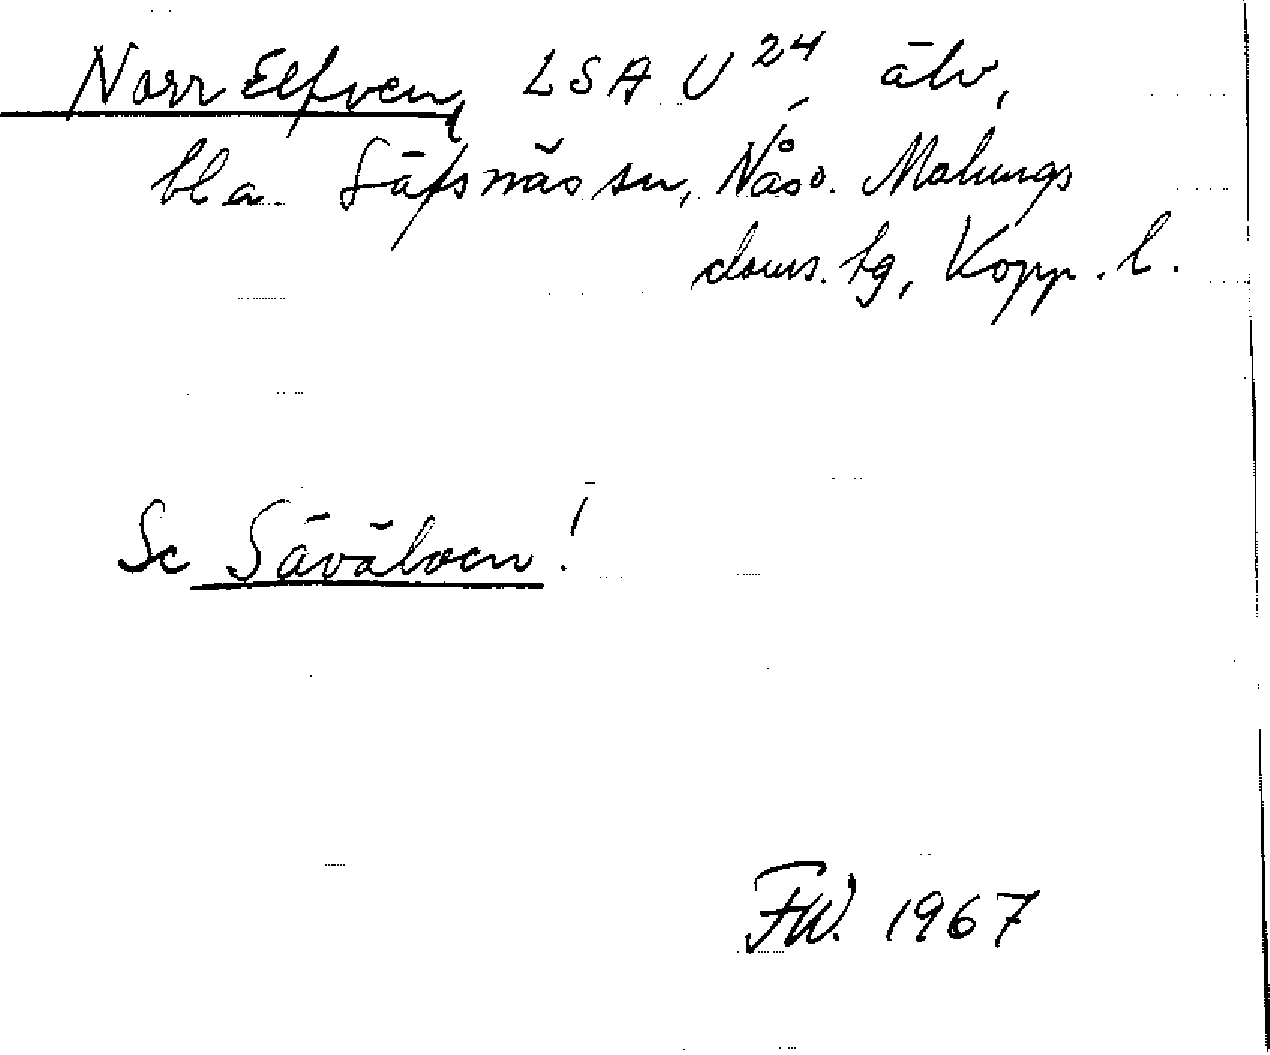 Norr Elfven, LSA U 24, älv,
bl a. Säfsnäs sn, Nås o. Malungs
doms. hg, Kopp. l.
Se Säväløen!
FW. 1967